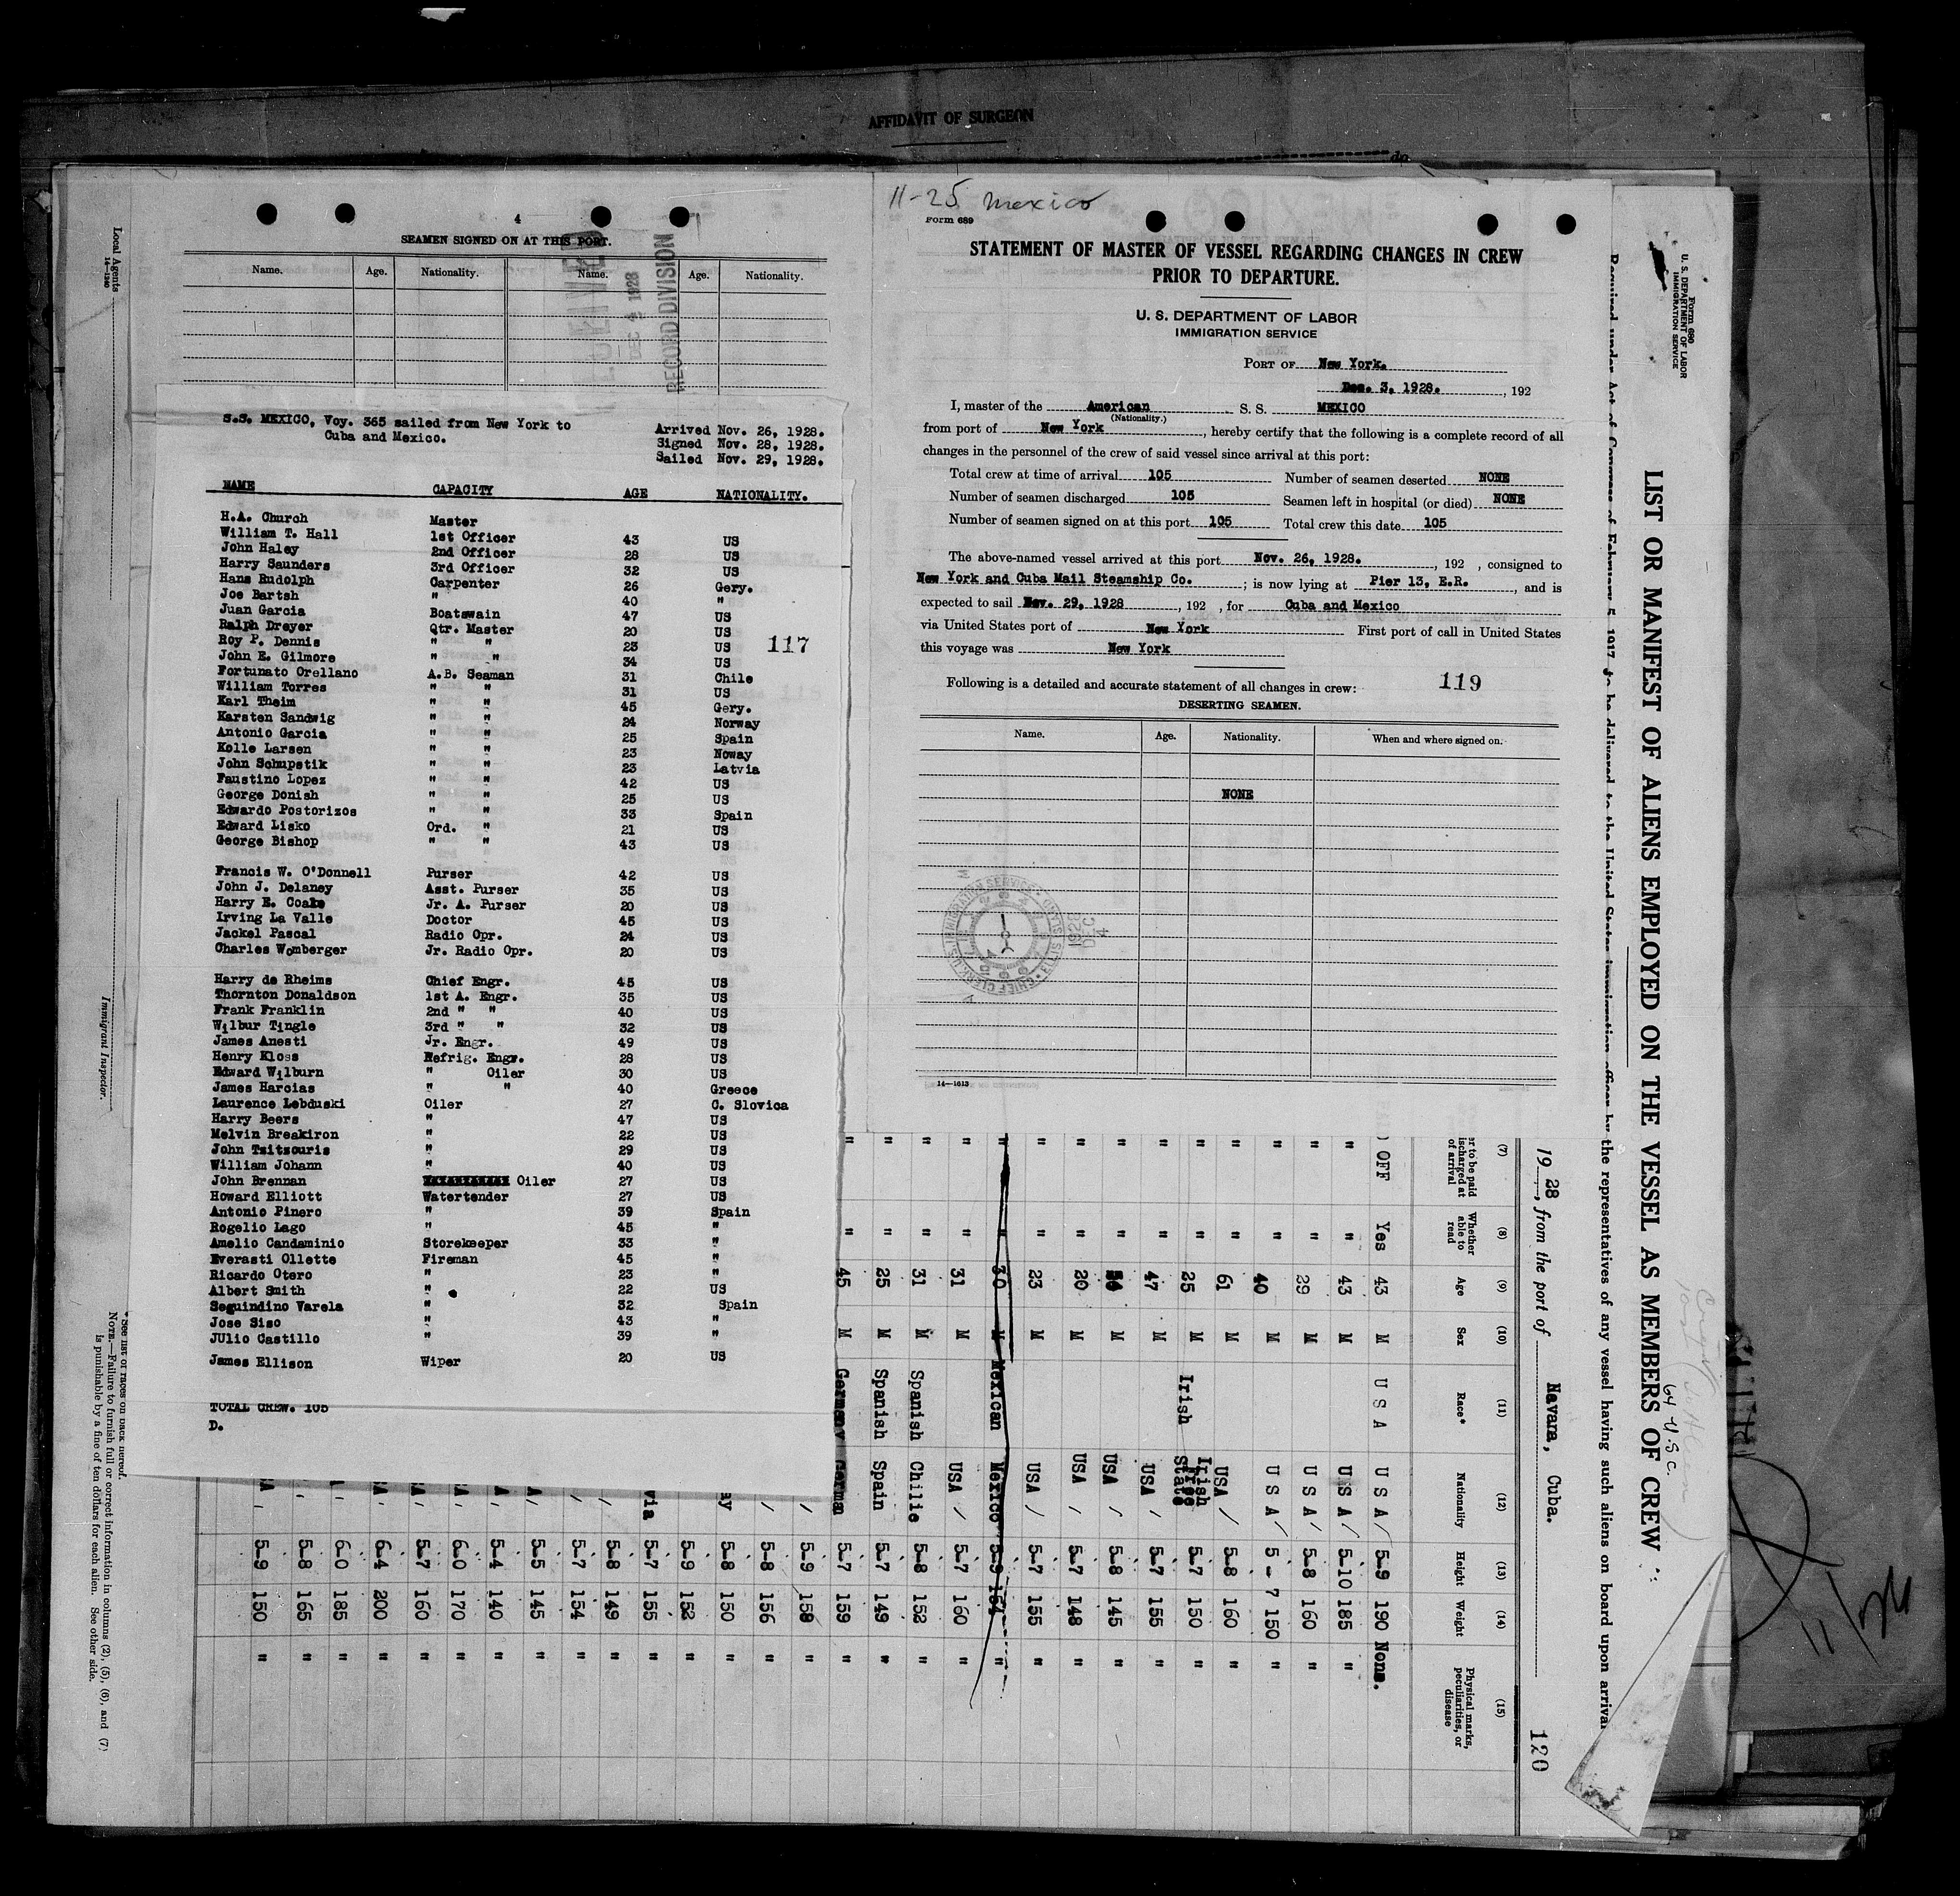 AFFIDAVIT OF SURGEON
do
4
SEAMEN SIGNED ON AT THIS PORT.
Name. Age. Nationality. Name. Age. Nationality.
DEC 1928
RECORD DIVISION
S.S. MEXICO, Voy. 365 sailed from New York to
Cuba and Mexico.
Arrived Nov. 26, 1928.
Signed Nov. 28, 1928.
Sailed Nov. 29, 1928.
NAME CAPACITY AGE NATIONALITY.
H.A. Church Master
William T. Hall 1st Officer 43 US
John Haley 2nd Officer 28 US
Harry Saunders 3rd Officer 32 US
Hans Rudolph Carpenter 26 Gery.
Joe Bartsh " 40 "
Juan Garcia Boatswain 47 US
Ralph Dreyer Qtr. Master 20 US
Roy P. Dennis " " 23 US
117
John E. Gilmore " " 34 US
Fortunato Orellano A.B. Seaman 31 Chile
William Torres " " 31 US
Karl Theim " " 45 Gery.
Karsten Sandwig " " 24 Norway
Antonio Garcia " " 25 Spain
Kolle Larsen " " 23 Noway
John Schupstik " " 23 Latvia
Faustino Lopez " " 42 US
George Donish " " 25 US
Edwardo Postorizos " " 33 Spain
Edward Lisko Ord. " 21 US
George Bishop " " 43 US
Francis W. O'Donnell Purser 42 US
John J. Delaney Asst. Purser 35 US
Harry E. Jr. A. Purser 20 US
Irving La Valle Doctor 45 US
Jackel Pascal Radio Opr. 24 US
Charles Womberger Jr. Radio Opr. 20 US
Harry de Rheims Chief Engr. 45 US
Thornton Donaldson 1st A. Engr. 35 US
Frank Franklin 2nd " " 40 US
Wilbur Tingle 3rd " " 32 US
James Anesti Jr. Engr. 49 US
Henry Kloss Refrig. Engr. 28 US
Edward Wilburn " Oiler 30 US
James Harcias " " 40 Greece
Laurence Lebduski Oiler 27 C. Slovica
Harry Beers " 47 US
Melvin Breakiron " 22 US
John Tzitzouris " 29 US
William Johann " 40 US
John Brennan Oiler 27 US
Howard Elliott Watertender 27 US
Antonio Pinero " 39 Spain
Rogelio Lago " 45 "
Amelio Candaminio Storekeeper 33 "
Everasti Ollette Fireman 45 "
Ricardo Otero " 23 "
Albert Smith " 22 US
Seguindino Varela " 32 Spain
Jose Siso " 43 "
JUlio Castillo " 39 "
James Ellison Wiper 20 US
TOTAL CREW. 105
D.
11-25 Mexico
Form 689
STATEMENT OF MASTER OF VESSEL REGARDING CHANGES IN CREW
PRIOR TO DEPARTURE.
U. S. DEPARTMENT OF LABOR
IMMIGRATION SERVICE
PORT OF New York.
Dec. 3, 1928. , 192
I, master of the American S. S. MEXICO
(Nationality.)
from port of New York , hereby certify that the following is a complete record of all
changes in the personnel of the crew of said vessel since arrival at this port:
Total crew at time of arrival 105 Number of seamen deserted NONE
Number of seamen discharged 105 Seamen left in hospital (or died) NONE
Number of seamen signed on at this port 105 Total crew this date 105
The above-named vessel arrived at this port Nov. 26, 1928. , 192 , consigned to
New York and Cuba Mail Steamship Co. ; is now lying at Pier 13, E.R. , and is
expected to sail Nov. 29, 1928 , 192 , for Cuba and Mexico
via United States port of New York First port of call in United States
this voyage was New York
Following is a detailed and accurate statement of all changes in crew: 119
DESERTING SEAMEN.
Name. Age. Nationality. When and where signed on.
NONE
14—1613
Form 680
U. S. DEPARTMENT OF LABOR
IMMIGRATION SERVICE
LIST OR MANIFEST OF ALIENS EMPLOYED ON THE VESSEL AS MEMBERS OF CREW
64 U.S.C.
the representatives of any vessel having such aliens on board upon arrival
19 28, from the port of Havara, Cuba.
120
(7) (8) (9) (10) (11) (12) (13) (14) (15)
Whether able to read Age Sex Race* Nationality Height Weight Physical marks, peculiarities, or disease
OFF Yes 43 M U S A U S A 5-9 190 None.
" " 43 M US A 5-10 185 "
" " 29 M U S A 5-8 160 "
" " 40 M U S A 5-7 150 "
" " 61 M USA 5-8 160 "
" " 25 M Irish Irish Free State 5-7 150 "
" " 47 M USA 5-7 155 "
" " M USA 5-8 145 "
" " 20 M USA 5-7 148 "
" " 23 M USA 5-7 155 "
" " 30 M Mexican Mexico 5-9 164 "
" " 31 M USA 5-7 160 "
" " 31 M Spanish Chilie 5-8 152 "
" " 25 M Spanish Spain 5-7 149 "
" " 45 M Germany German 5-7 159 "
5-9 158 "
5-8 156 "
5-8 150 "
5-9 152 "
via 5-7 155 "
5-8 149 "
5-7 154 "
5-5 145 "
5-4 140 "
6-0 170 "
5-7 160 "
6-4 200 "
6-0 185 "
5-8 165 "
5-9 150 "
Local Agents
14—1240
Immigrant Inspector.
* See list of races on back hereof.
NOTE.—Failure to furnish full or correct information in columns (2), (5), (6), and (7)
is punishable by a fine of ten dollars for each alien. See other side.